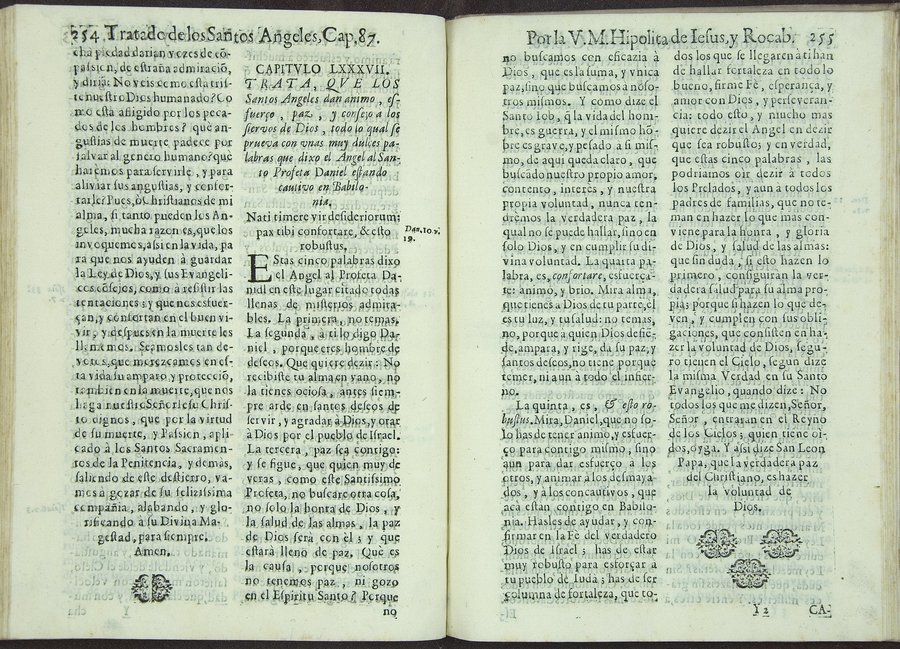 254 Tratado de los Santos Angeles, Cap, 87.
cha piedad darian vozes de cō-
passion, de estraña admiraciō,
y diriā: No veis como està tris-
te nuestro Dios humanado? Co
mo està afligido por los peca-
dos de los hombres? què an-
gustias de muerte padece por
salvar al genero humano? què
harèmos para servirle, y para
aliviar sus angustias, y confor-
tarle? Pues, ò Christianos de mi
alma, si tanto pueden los An-
geles, mucha razon es, que los
invoquemes, assi en la vida, pa
ra que nos ayuden à guardar
la Ley de Dios, y sus Evangeli-
cos cōsejos, como à resistir las
tentaciones; y que nos esfuer-
çan, y confortan en el buen vi-
vir, y despues en la muerte les
llamamos. Seamosles tan de-
votos, que merezcamos en es-
ta vida su amparo, y protecciō,
tambien en la muerte, que nos
haga nuestro Señor Iesu Chris-
to dignos, que por la virtud
de su muerte, y Passion, apli-
cado à los Santos Sacramen-
tos de la Penitencia, y demàs,
saliendo de este destierro, va-
mos à gozar de su felizissima
compañia, alabando, y glo-
rificando à su Divina Ma-
gestad, para siempre.
Amen.
Y
cha
CAPITVLO LXXXVII.
TRATA, QVE LOS
Santos Angeles dan animo, es-
fuerço, paz, y consejo à los
siervos de Dios, todo lo qual se
prueva con vnas muy dulces pa-
labras que dixo el Angel al San-
to Profeta Daniel estando
cautivo en Babilo-
nia.
Nati timere vir desideriorum;
pax tibi confortare, & esto
robustus.
Dan. 10. v.
19.
EStas cinco palabras dixo
el Angel al Profeta Da-
niel en este lugar citado todas
llenas de misterios admira-
bles. La primera, no temas.
La segunda, à ti lo digo Da-
niel, porque eres hombre de
deseos. Que quiere dezir: No
recibiste tu alma en vano, no
la tienes ociosa, antes siem-
pre arde en santos deseos de
servir, y agradar à Dios, y orar
à Dios por el pueblo de Israel.
La tercera, paz sea contigo:
y se sigue, que quien muy de
veras, como este Santissimo
Profeta, no buscare otra cosa,
no solo la honra de Dios, y
la salud de las almas, la paz
de Dios serà con èl; y que
estarà lleno de paz. Què es
la causa, porque nosotros
no tenemos paz, ni gozo
en el Espiritu Santo? Porque
no
Por la V. M. Hipolita de Iesus, y Rocab. 255
no buscamos con eficazia à
Dios, que es la suma, y vnica
paz, sino que buscamos à noso-
tros mismos. Y como dize el
Santo Iob, q̄ la vida del hom-
bre, es guerra, y el mismo hō-
bre es grave, y pesado à si mis-
mo, de aqui queda claro, que
buscādo nuestro propio amor,
contento, interès, y nuestra
propia voluntad, nunca ten-
drèmos la verdadera paz, la
qual no se puede hallar, sino en
solo Dios, y en cumplir su di-
vina voluntad. La quarta pa-
labra, es, confortare, esfuerça-
te: animo, y brio. Mira alma,
que tienes à Dios de tu parte, èl
es tu luz, y tu salud: no temas,
no, porque à quien Dios defiē-
de, ampara, y rige, dà su paz, y
santos deseos, no tiene porquè
temer, ni aun à todo el infier-
no.
La quinta, es, & esto ro-
bustus. Mira, Daniel, que no so-
lo has de tener animo, y esfuer-
ço para contigo mismo, sino
aun para dar esfuerço à los
otros, y animar à los desmaya-
dos, y à los concautivos, que
acà estàn contigo en Babilo-
nia. Hasles de ayudar, y con-
firmar en la Fè del verdadero
Dios de Israel; has de estar
muy robusto para esforçar à
tu pueblo de Iudà; has de ser
columna de fortaleza, que to-
dos los que se llegaren à ti han
de hallar fortaleza en todo lo
bueno, firme Fè, esperança, y
amor con Dios, y perseveran-
cia: todo esto, y mucho mas
quiere dezir el Angel en dezir
que sea robusto; y en verdad,
que estas cinco palabras, las
podriamos oir dezir à todos
los Prelados, y aun à todos los
padres de familias, que no te-
man en hazer lo que mas con-
viene para la honra, y gloria
de Dios, y salud de las almas:
que sin duda, si esto hazen lo
primero, conseguiràn la ver-
dadera salud para su alma pro-
pia; porque si hazen lo que de-
ven, y cumplen con sus obli-
gaciones, que consisten en ha-
zer la voluntad de Dios, segu-
ro tienen el Cielo, segun dize
la misma Verdad en su Santo
Evangelio, quando dize: No
todos los que me dizen, Señor,
Señor, entraràn en el Reyno
de los Cielos; quien tiene oì-
dos, oyga. Y assi dize San Leon
Papa, que la verdadera paz
del Christiano, es hazer
la voluntad de
Dios.
Y 2
CA-